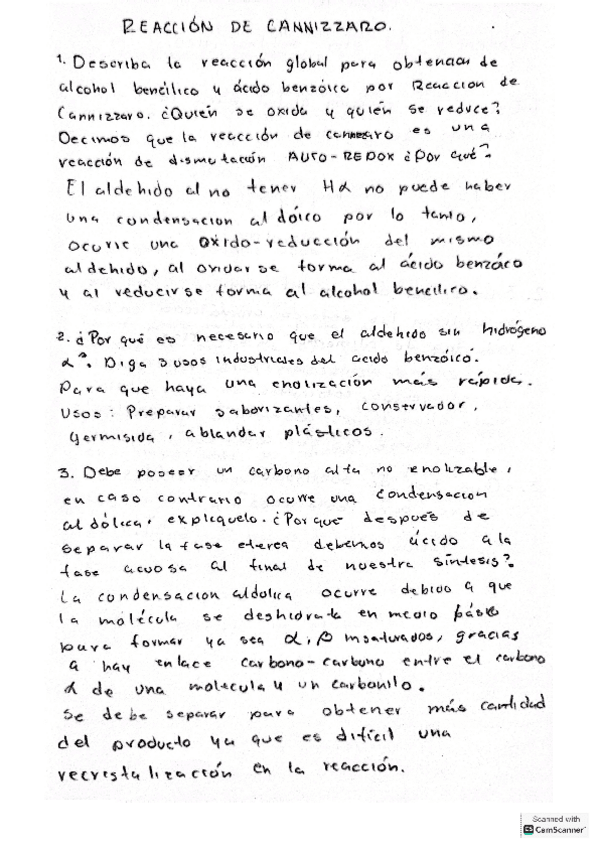 REACCIÓN DE CANNIZZARO.
1. Describa la reacción global para obtención de
alcohol bencílico y ácido benzóico por Reaccion de
Cannizzaro. ¿Quién se oxida y quién se reduce?
Decimos que la reacción de cannizaro es una
reacción de dismutación AUTO-REDOX ¿Por qué?
El aldehido al no tener Hα no puede haber
una condensacion aldóico por lo tanto,
ocurre una oxido-reducción del mismo
aldehido, al oxidarse forma al ácido benzóco
y al reducirse forma al alcohol bencilico.
2. ¿Por qué es necesario que el aldehido sin hidrógeno
α?. Diga 3 usos industriales del ácido benzóico.
Para que haya una enolización más rápida.
Usos: Preparar saborizantes, conservador,
germisida, ablandar plásticos.
3. Debe poseer un carbono alfa no enolizable,
en caso contrario ocurre una condensacion
aldólica, expliquelo. ¿Por que después de
separar la fase eterea debemos ácido a la
fase acuosa al final de nuestra síntesis?.
La condensacion aldolica ocurre debido a que
la molécula se deshidrata en medio básico
para formar ya sea α, β insaturados, gracias
a hay enlace carbono-carbono entre el carbono
α de una molecula y un carbonilo.
Se debe separar para obtener más cantidad
del producto ya que es difícil una
recristalización en la reacción.
Scanned with
CS CamScanner